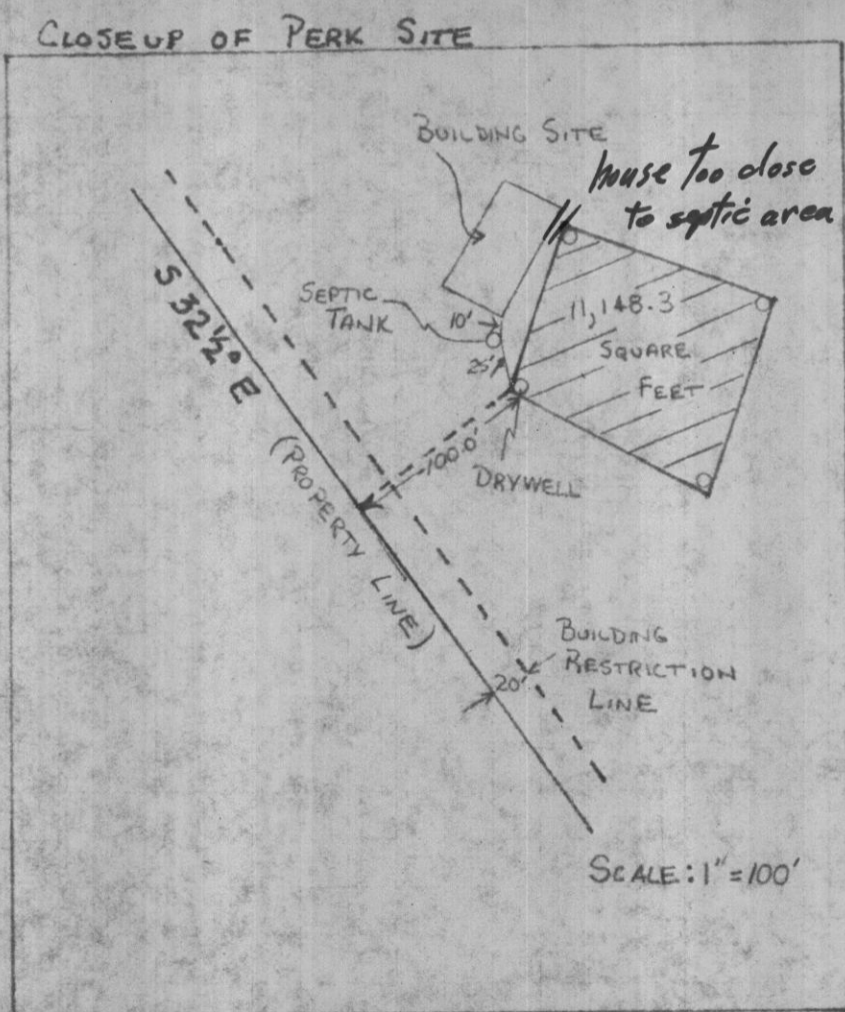 CLOSEUP OF PERK SITE
BUILDING SITE
house too close
to septic area
SEPTIC
TANK
10'
25'
11,148.3
SQUARE
FEET
S 32½° E
(PROPERTY LINE)
100.0'
DRYWELL
BUILDING
RESTRICTION
LINE
20'
SCALE: 1" = 100'